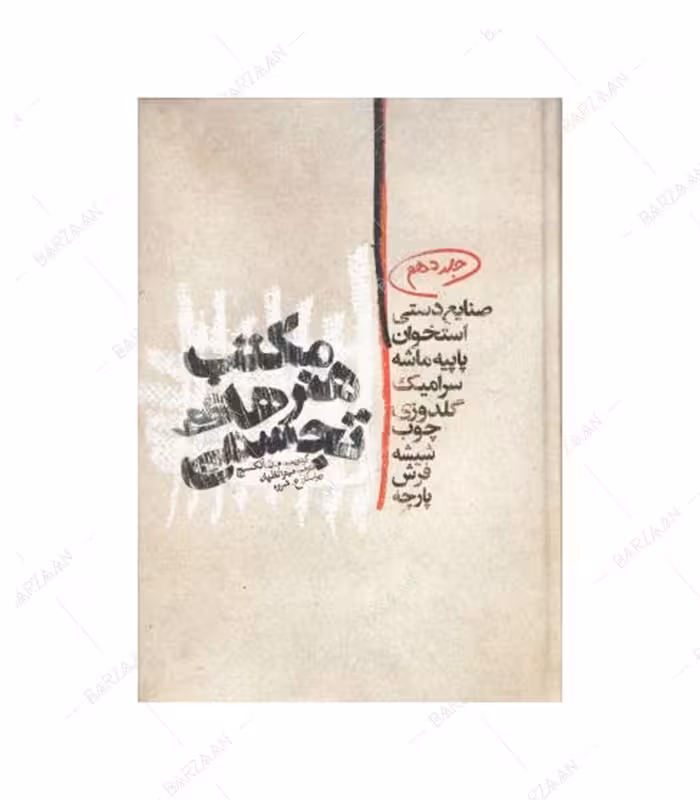 جلد دهم
صنایع دستی
استخوان
پاپیه ماشه
سرامیک
گلدوزی
چوب
شیشه
فرش
پارچه
مکتب
هنرهای
تجسمی
BARZAAN